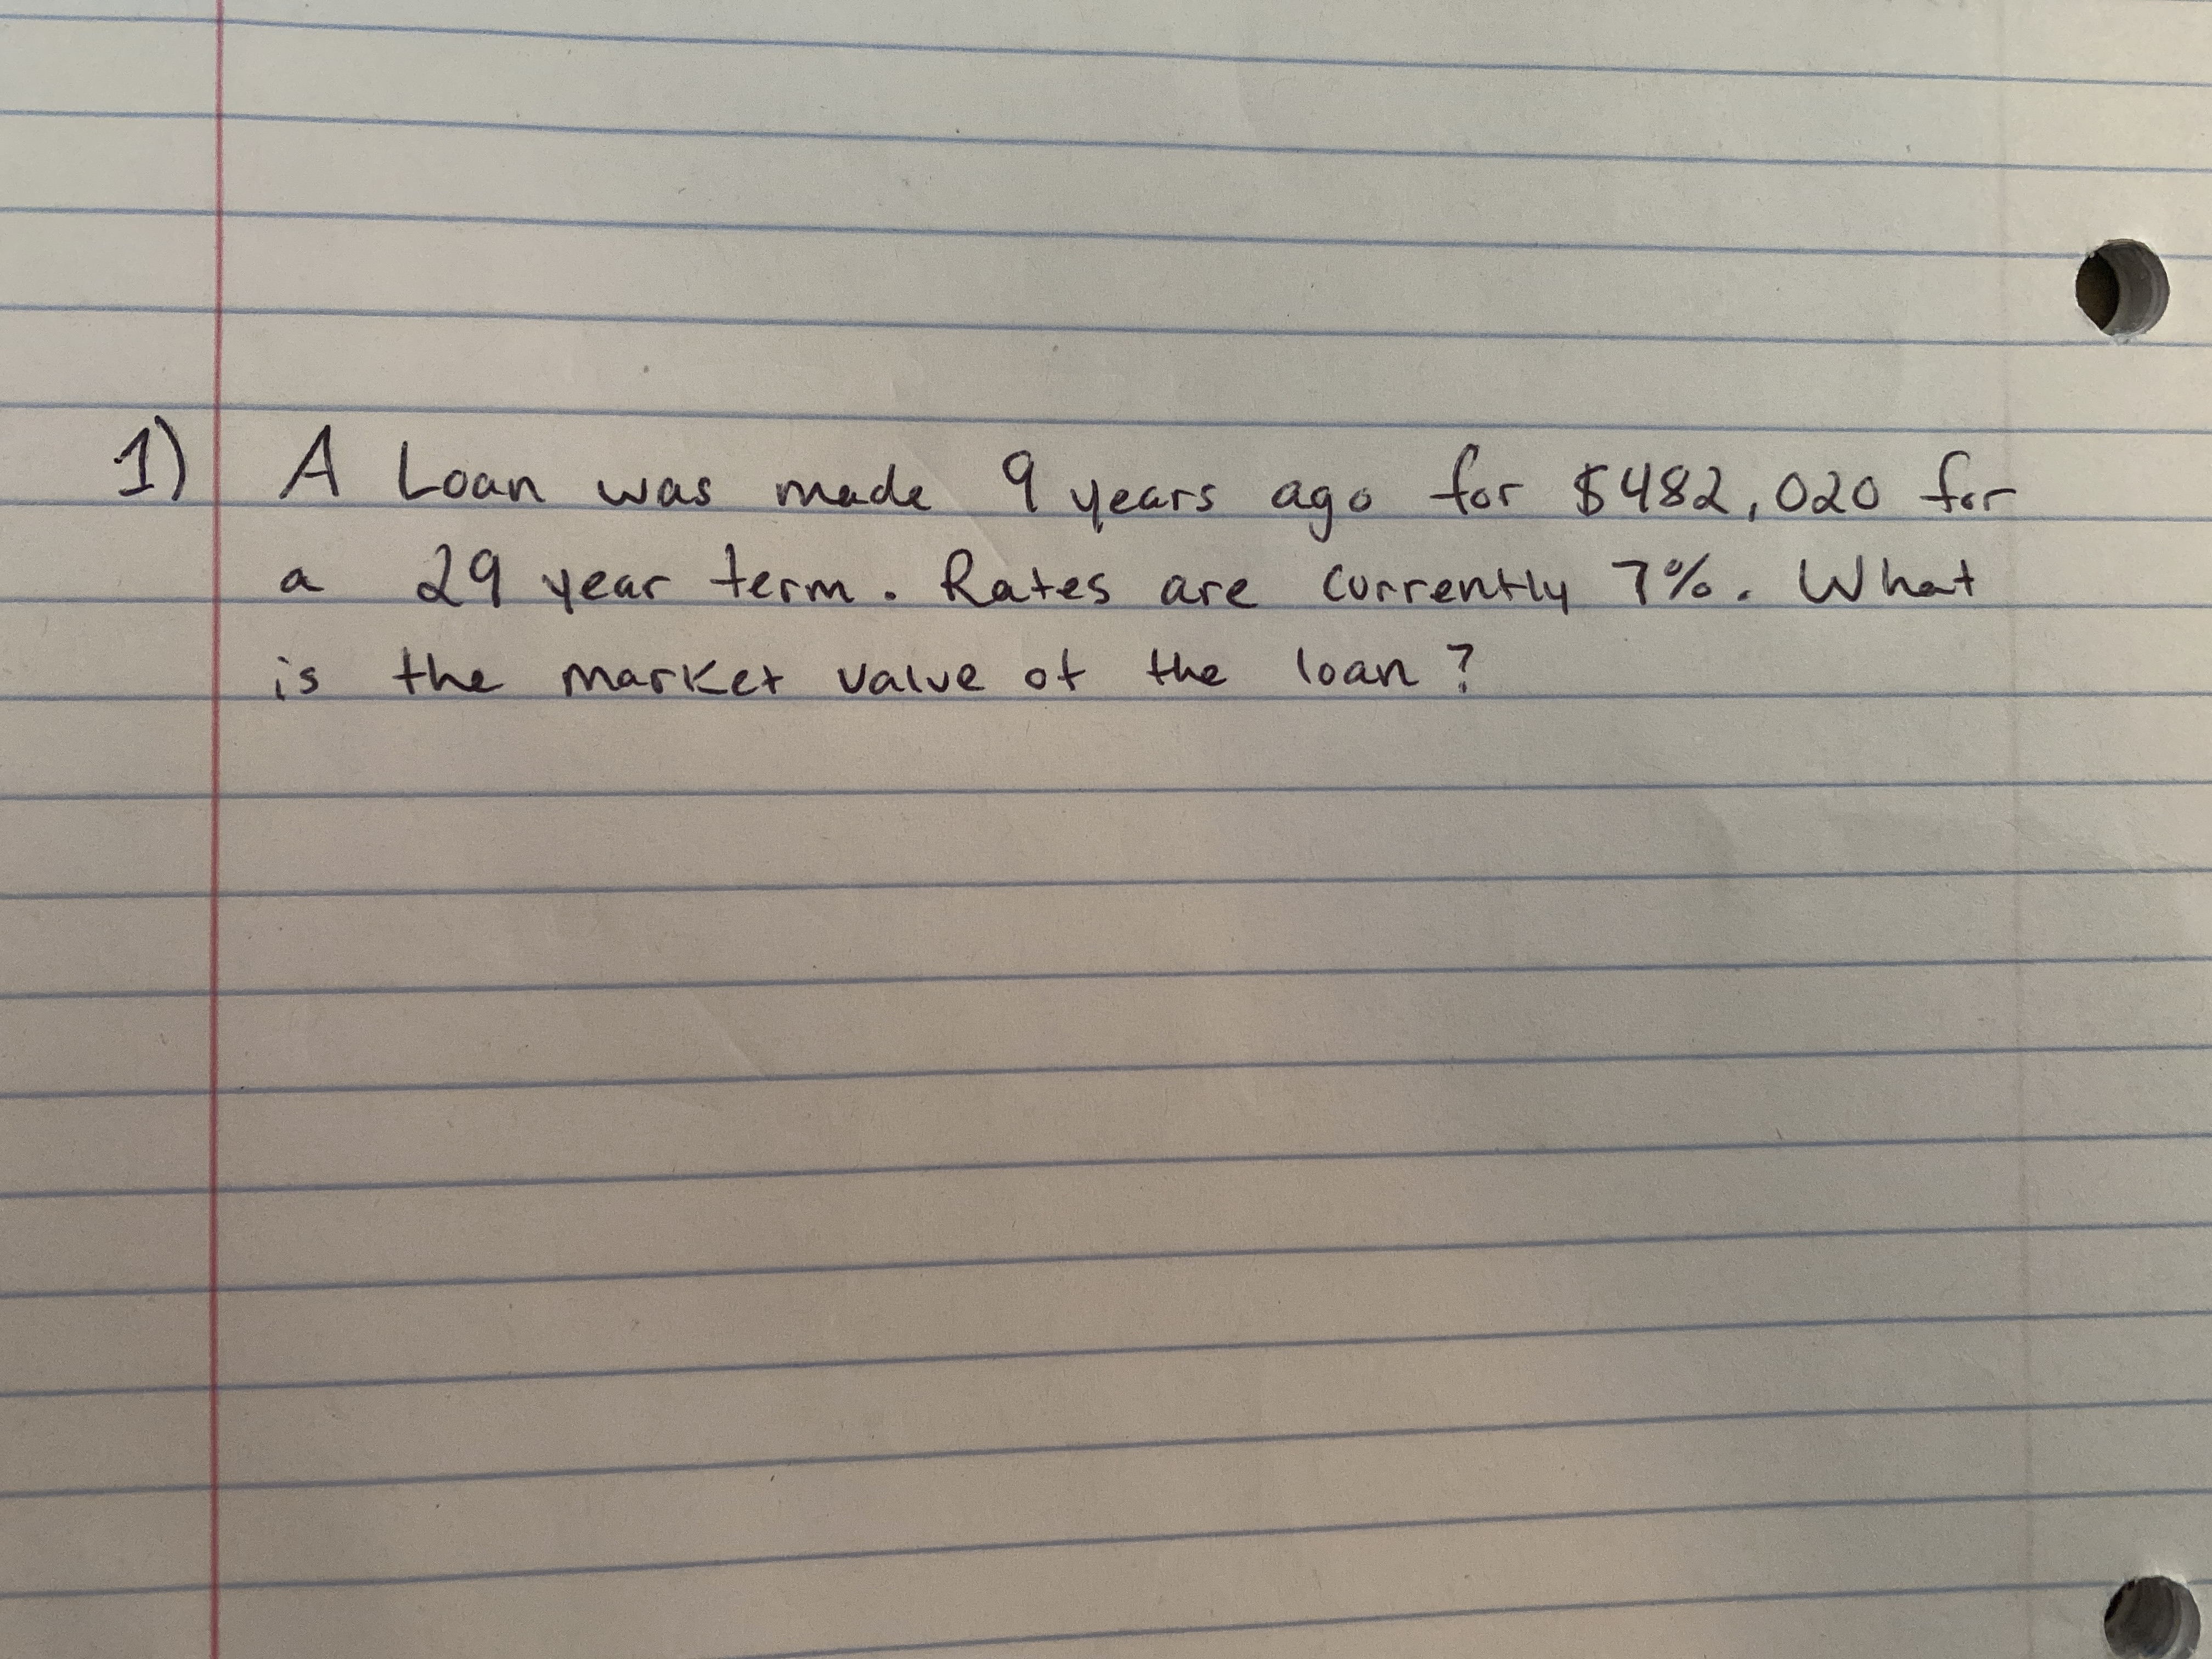 1) A Loan was made 9 years ago for $482,020 for
a 29 year term. Rates are currently 7%. What
is the market value of the loan?